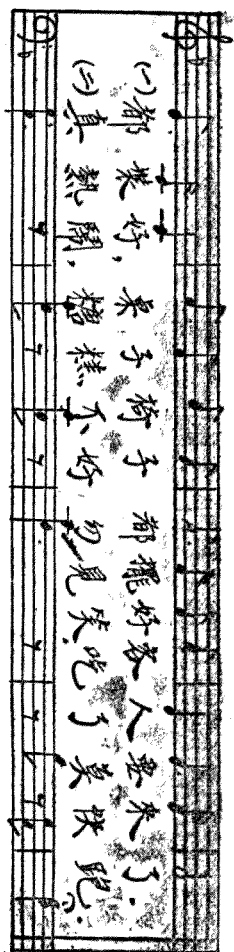 (一)都裝好,桌子椅子 都擺好客人要來了.
(二)真熱鬧,糟糕不好 勿見笑吃了莫快跑.